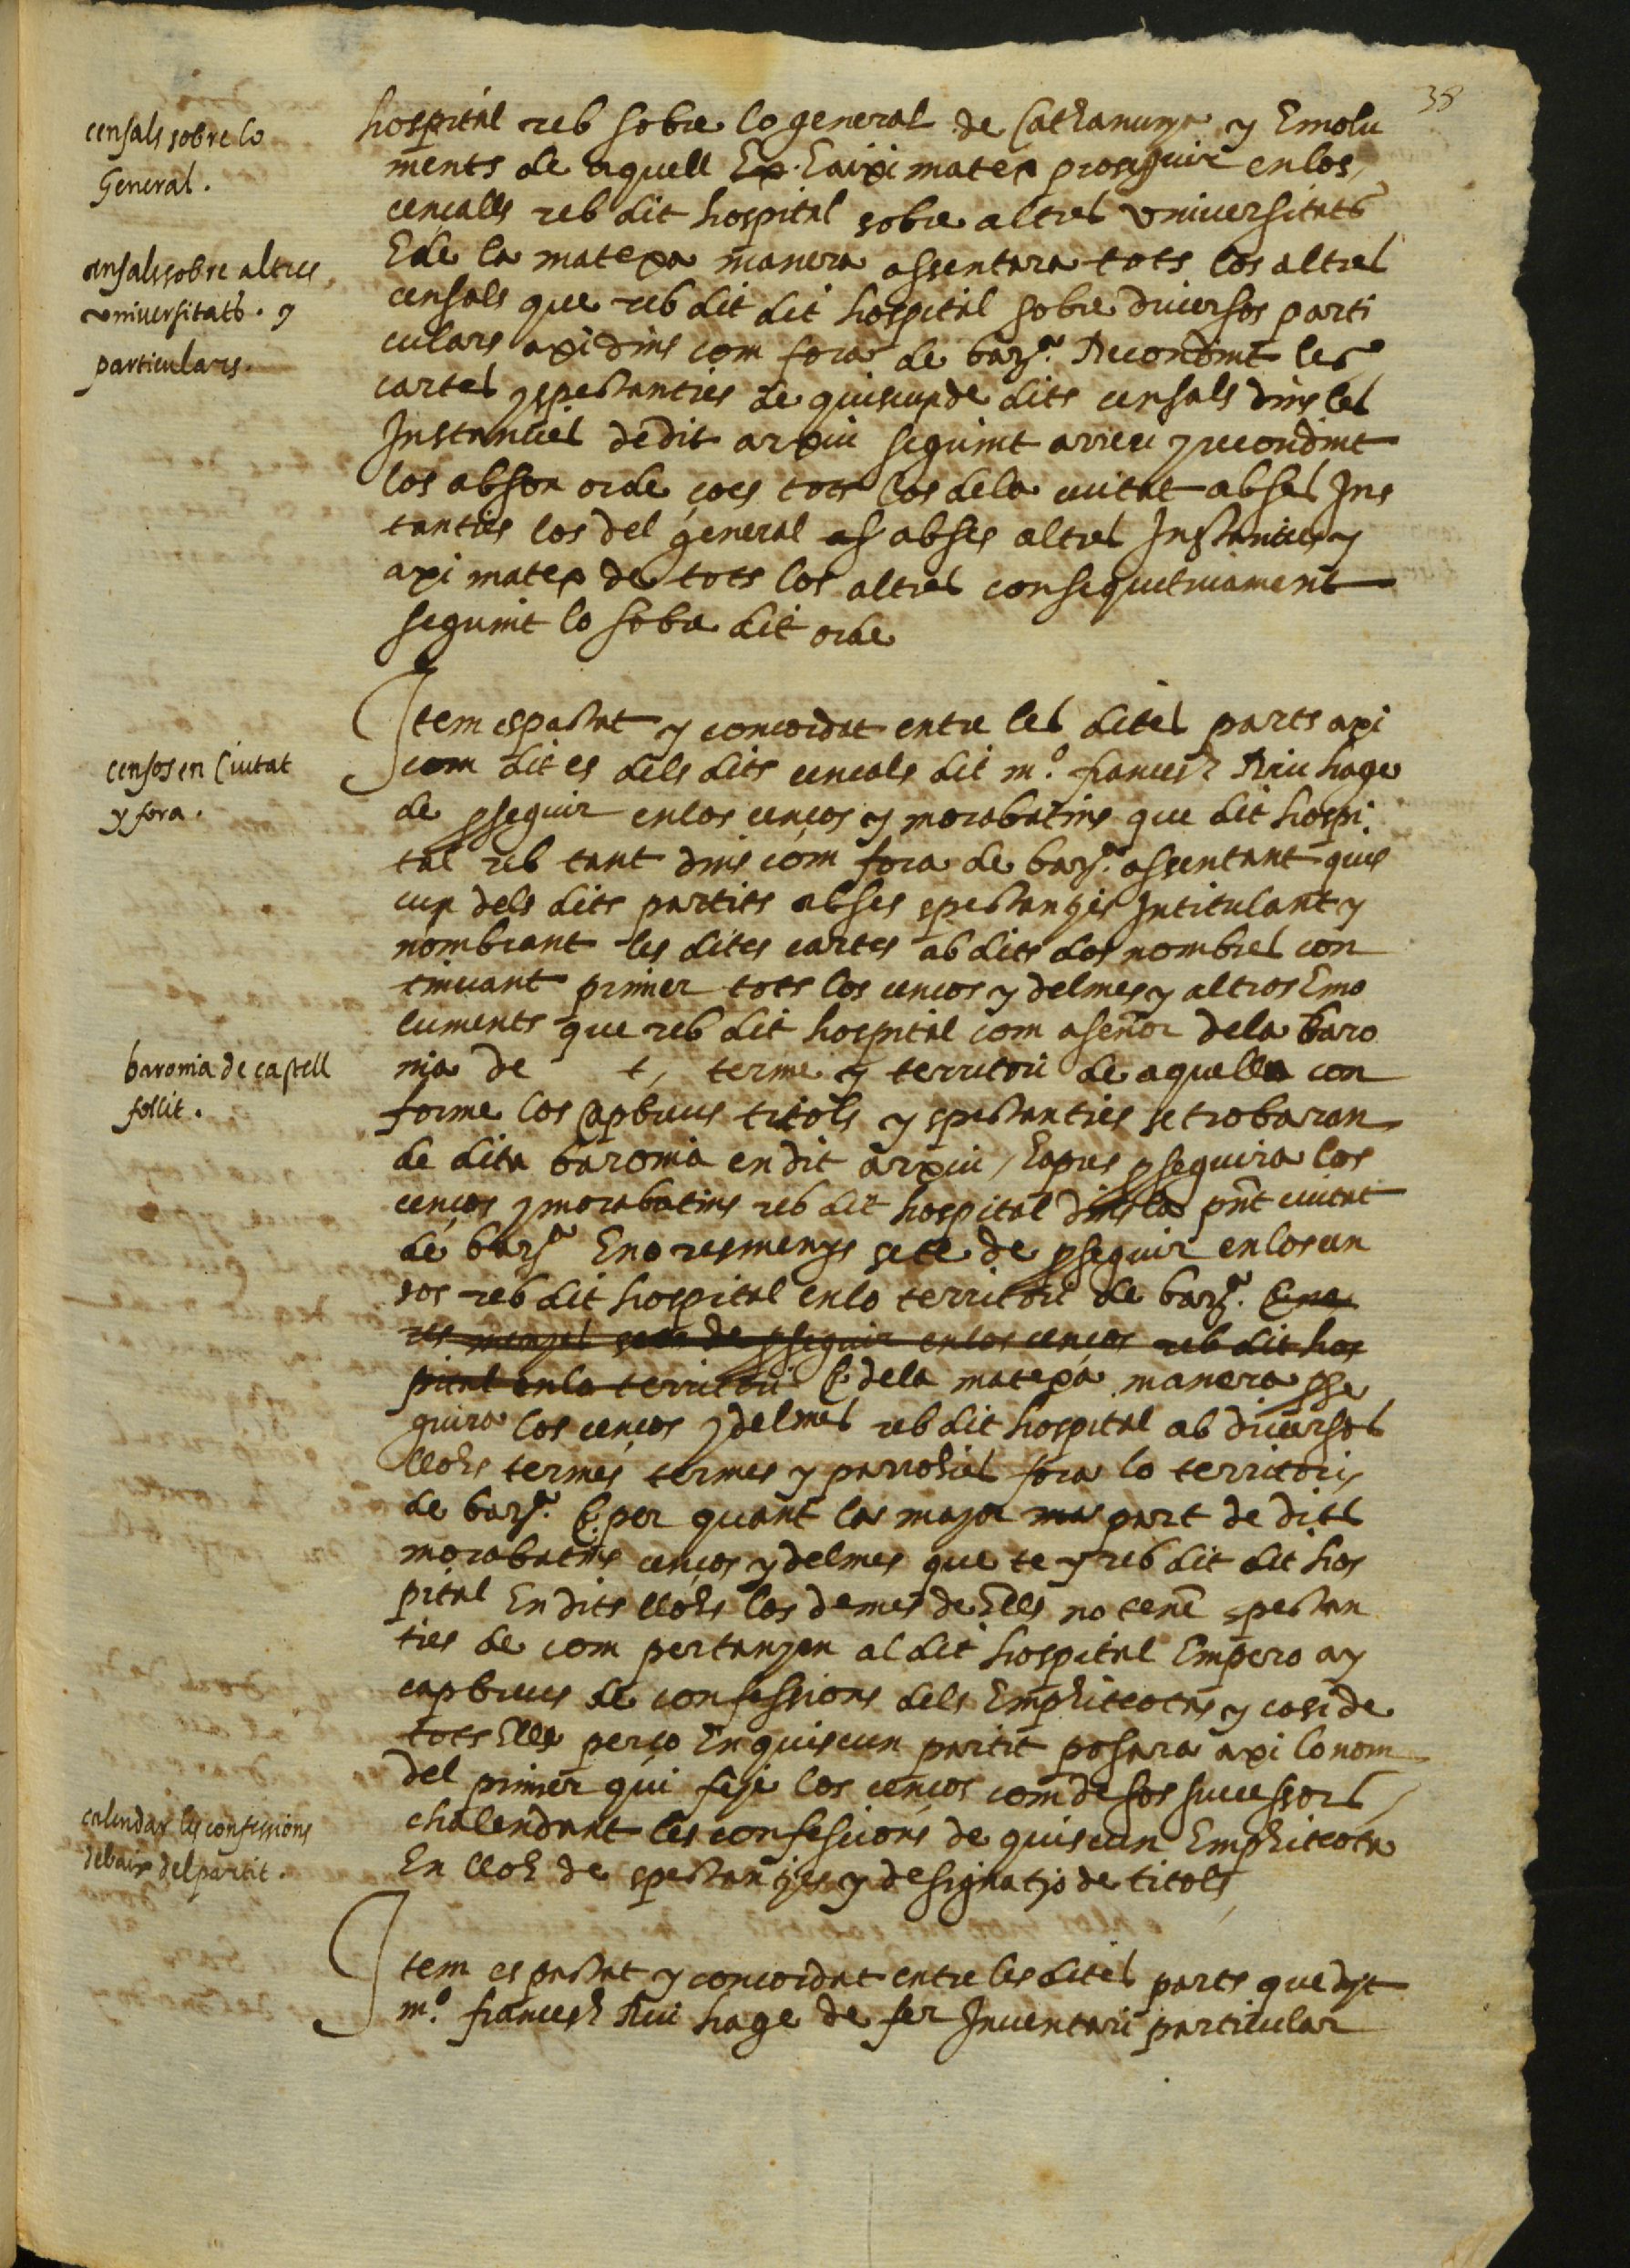 38
censals sobre lo
General.
hospital reb sobre lo general de Cathalunya y Emolu
ments de aquell Ex. E aixi matex proseguir en los
cençalls reb dit hospital sobre altres universitats
censals sobre altres
universitats. y
particulars.
E de la matexa manera assentara tots los altres
censals que reb dit dit hospital sobre diversos parti
culars axi dins com fora de barna. Recondint les
cartes y spectanties de quiscun de dits censals dins les
Instancies de dit arxiu seguint arreu y recondint
los ab son orde ço es tots los de la ciutat ab ses Ins
tanties los del general as ab ses altres Instancies y
axi matex de tots los altres consequetivament
seguint lo sobre dit orde
censos en Ciutat
y fora.
Item es pactat y concordat entre les dites parts axi
com dit es dels dits cencals dit mº. francesch Riu hage
de pseguir en los cenços y morabatins que dit hospi
tal reb tant dins com fora de barna. assentant quis
cun dels dits partits ab ses spectanties Intitulant y
nombrant les dites cartes ab dits dos nombres con
tinuant primer tots los cencos y delmes y altros Emo
luments que reb dit hospital com a señor de la baro
baronia de castell
follit.
nia de t, terme y territori de aquella con
forme los capbreus titols y spectanties se trobaran
de dita baronia en dit arxiu, Eapres pseguira los
cenços y morabatins reb dit hospital dins la pnt ciutat
de barna Eno resmenys se te de pseguir en los cen
sos reb dit hospital en lo territori de barna. E no
res menys se te de pseguir en los cenços reb dit hos
pital en lo territori E de la matexa manera pse
guira los cenços y delmes reb dit hospital ab diversos
llochs termes termes y parrochies fora lo territori
de barna. E per quant la major mas part de dits
morabatins cenços y delmes que te y reb dit dit hos
pital En dits llochs los demes de Ells no tene spectan
ties de com pertanyen al dit hospital Empero ay
capbreus de confessions dels Emphiteotas y casi de
tots Ells perço En quiscun partit posara axi lo nom
del primer qui feye los cenços com de sos successors,
calendar les confessions
debaix del partit.
chalendant les confesions de quiscun Emphiteota
En lloch de spectanties y designatio de titols,
Item es pactat y concordat entre les dites parts que dit
mº. francesch Riu hage de fer Inventari particular